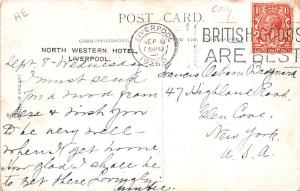 HE
POST CARD.
NORTH WESTERN HOTEL,
LIVERPOOL.
LIVERPOOL
SEP 8
1926
BRITISH GOODS
ARE BEST
Sept. 8 - Wednesday
I must send
you a word from
here & wish you
to be very well
when I get home.
How glad I shall be
to get there. Lovingly
Auntie
Francis Osborn
47 Highland Road
Glen Cove,
New York.
U. S. A.